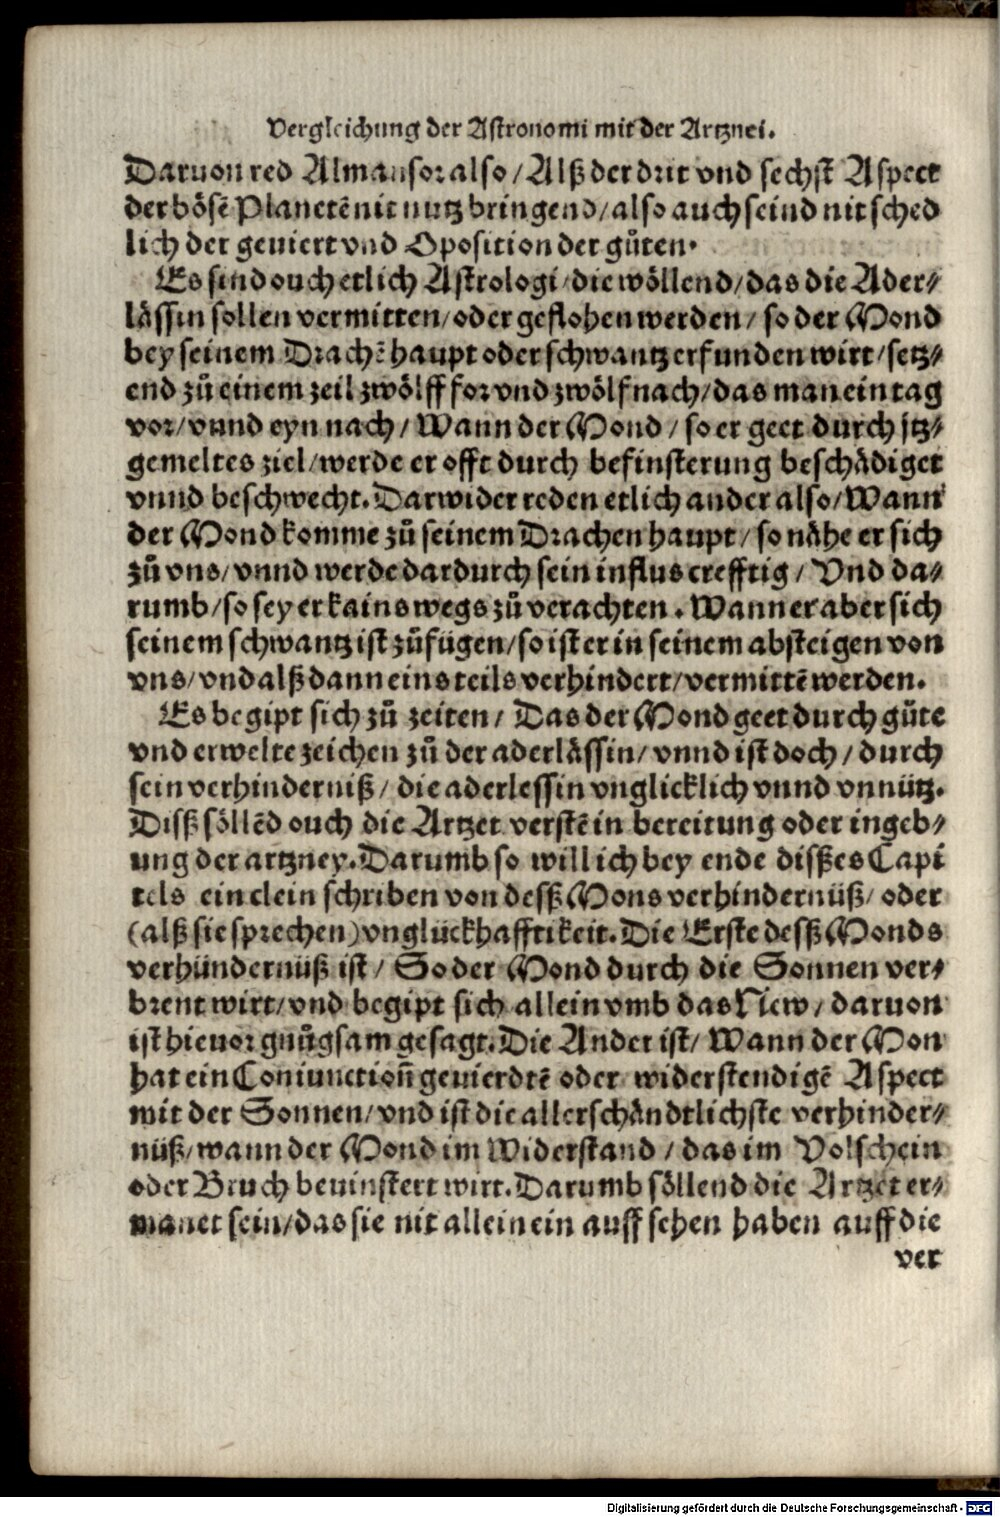 Vergleichung der Astronomi mit der Artznei.
Daruon red Almansor also / Alß der drit vnd sechst Aspect
der bösẽ Planetẽ nit nutz bringend / also auch seind nit sched
lich der geuiert vnd Oposition der gůten.
Es sind ouch etlich Astrologi / die wöllend / das die Ader⸗
lässin sollen vermitten / oder geflohen werden / so der Mond
bey seinem Drachẽ haupt oder schwantz erfunden wirt / setz⸗
end zů einem zeil zwölff for vnd zwölf nach / das man ein tag
vor / vnnd eyn nach / Wann der Mond / so er geet durch jtz⸗
gemeltes ziel / werde er offt durch befinsterung beschädiget
vnnd beschwecht. Darwider reden etlich ander also / Wann
der Mond komme zů seinem Drachen haupt / so nähe er sich
zů vns / vnnd werde dardurch sein influs crefftig / Vnd da⸗
rumb / so sey er kains wegs zů verachten. Wann er aber sich
seinem schwantz ist zůfügen / so ist er in seinem absteigen von
vns / vnd alß dann eins teils verhindert / vermittẽ werden.
Es begipt sich zů zeiten / Das der Mond geet durch gůte
vnd erwelte zeichen zů der aderlässin / vnnd ist doch / durch
sein verhinderniß / die aderlessin vnglicklich vnnd vnnütz.
Disß söllẽd ouch die Artzet verstẽ in bereitung oder ingeb⸗
ung der artzney. Darumb so will ich bey ende disßes Capi
tels ein clein schriben von desß Mons verhindernüß / oder
(alß sie sprechen) vnglückhafftikeit. Die Erste desß Monds
verhündernüß ist / So der Mond durch die Sonnen ver⸗
brent wirt / vnd begipt sich allein vmb das New / daruon
ist hieuor gnůgsam gesagt. Die Ander ist / Wann der Mon
hat ein Coniunction̄ geuierdtẽ oder widerstendigẽ Aspect
mit der Sonnen / vnd ist die allerschändtlichste verhinder⸗
nüß / wann der Mond im Widerstand / das im Volschein
oder Bruch beuinstert wirt. Darumb söllend die Artzet er⸗
manet sein / das sie nit allein ein auff sehen haben auff die
ver
Digitalisierung gefördert durch die Deutsche Forschungsgemeinschaft - DFG